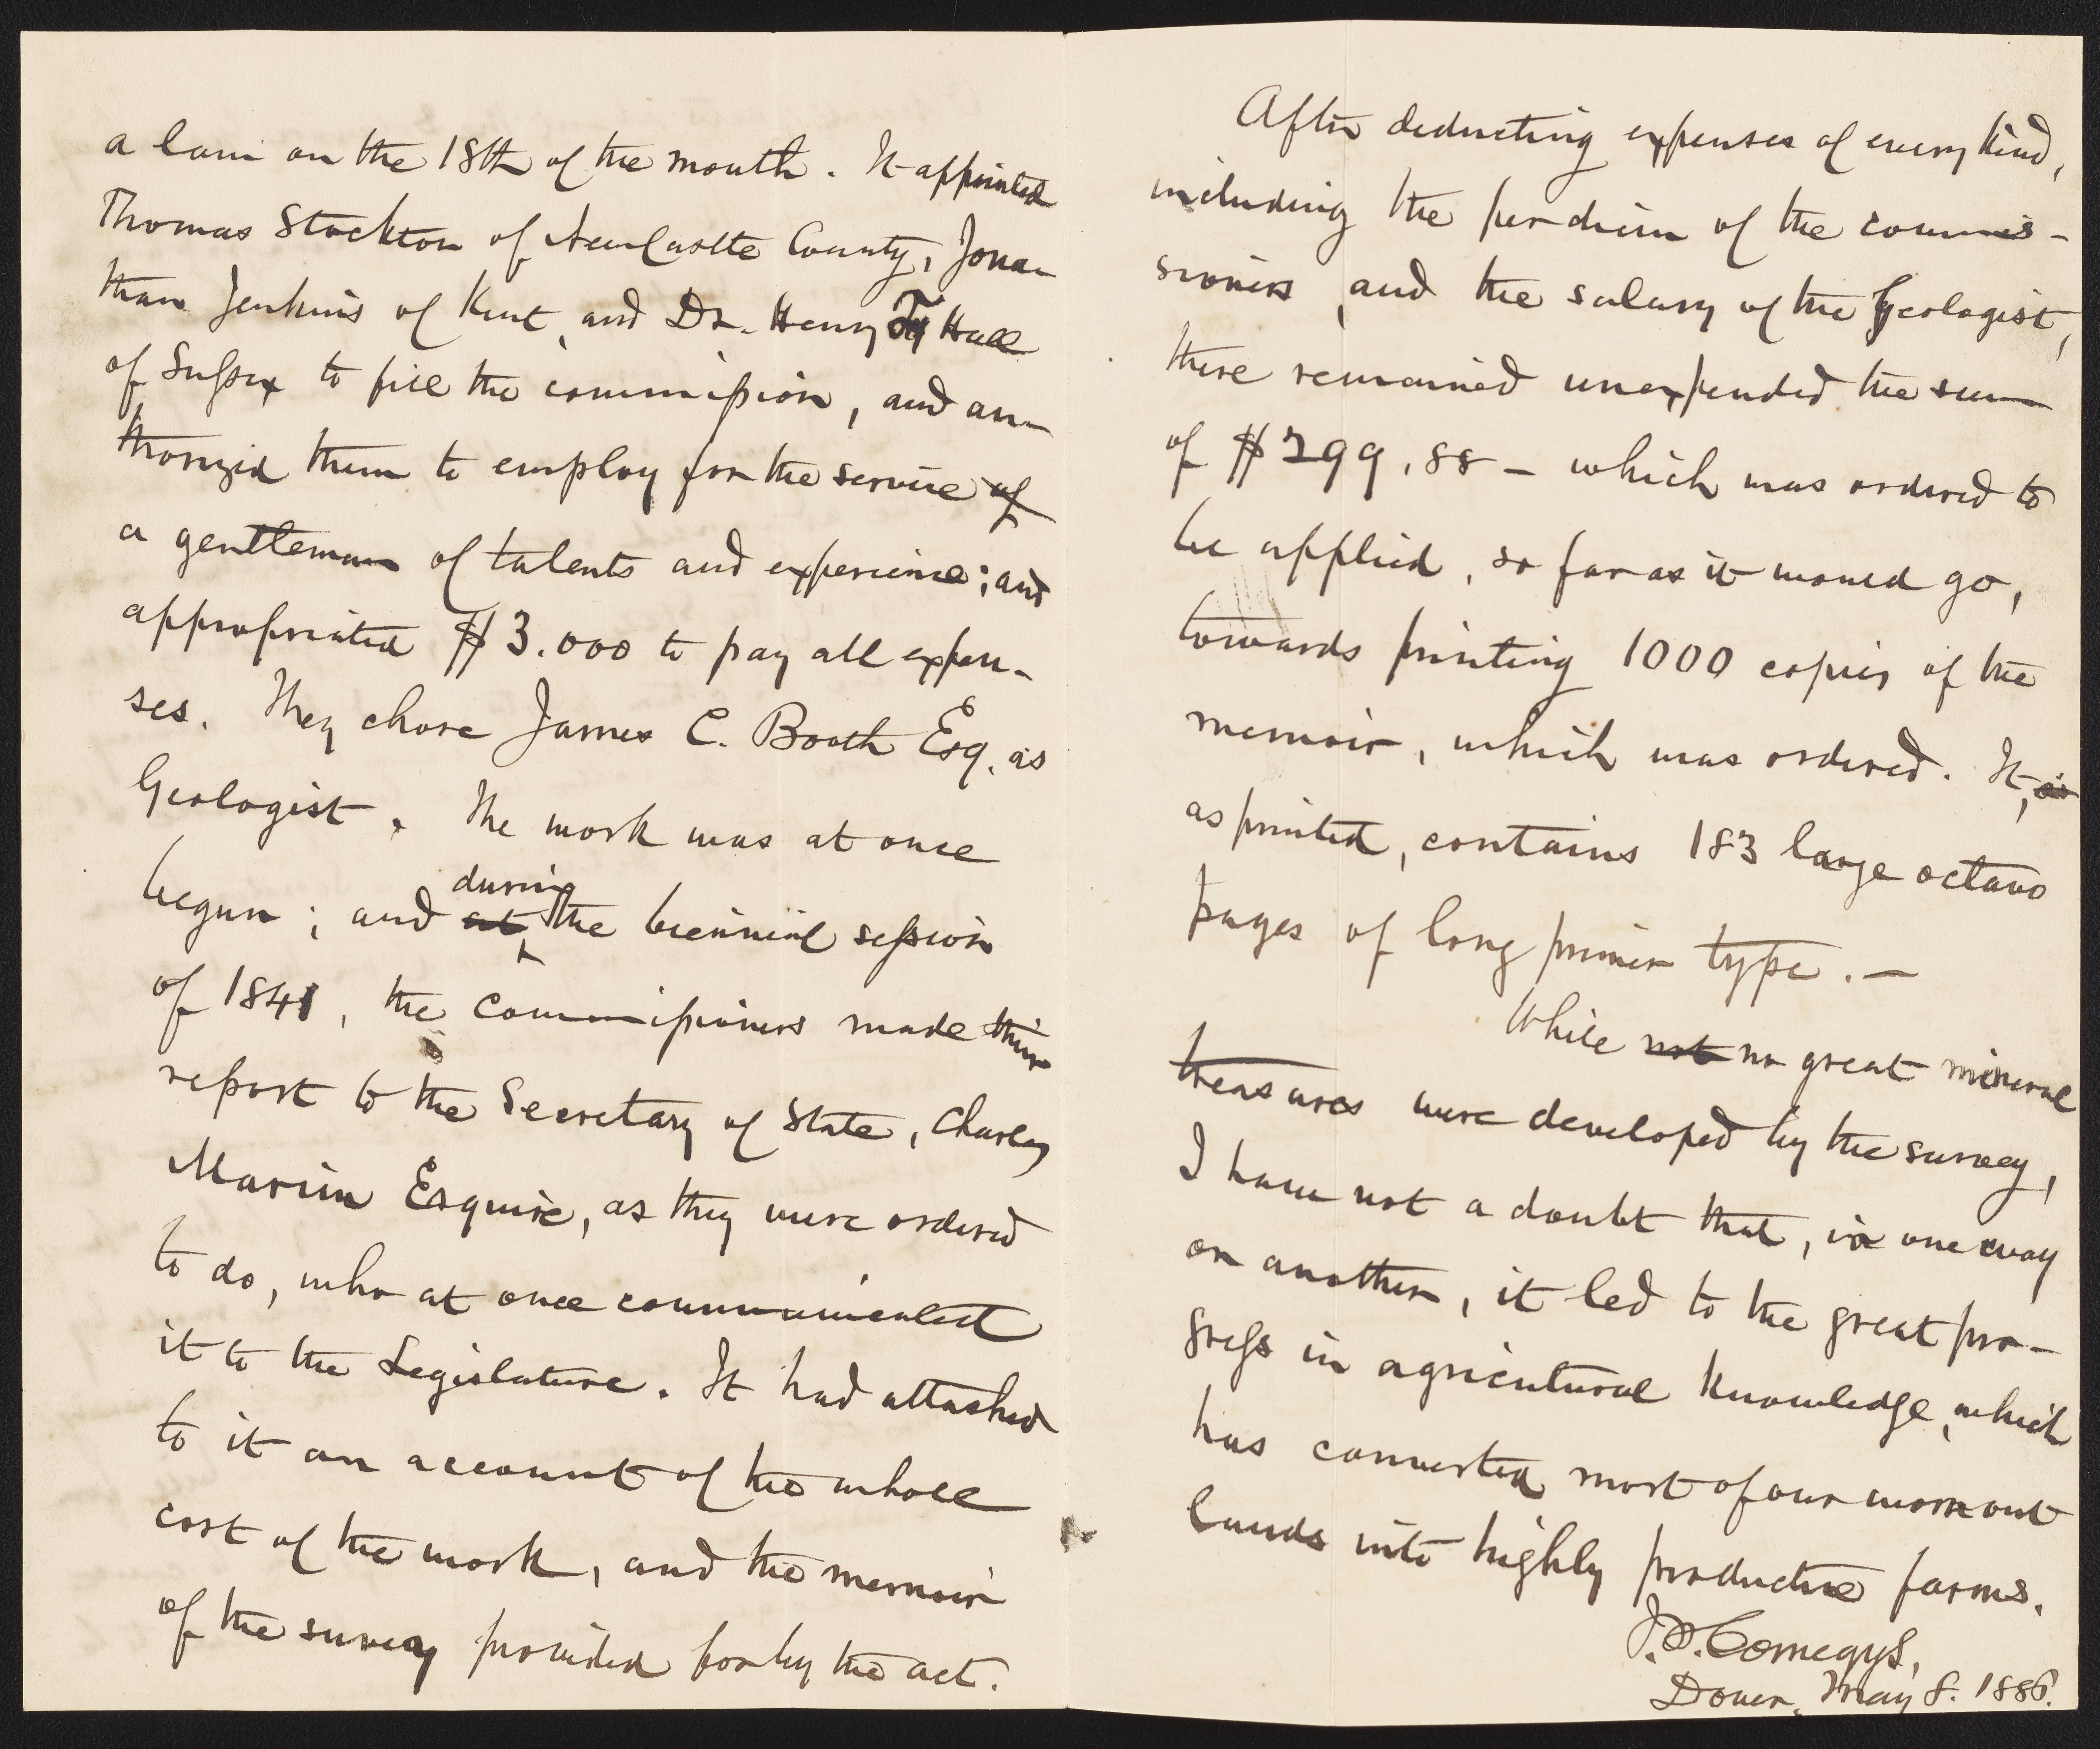 a law on the 18th of the month. It appointed
Thomas Stockton of New Castle County, Jona-
than Jenkins of Kent, and Dr. Henry F. Hall
of Sussex to fill the commission, and au-
thorized them to employ for the service of
a gentleman of talents and experience; and
appropriated $3.000 to pay all expen-
ses. They chose James C. Booth Esq. as
Geologist. The work was at once
begun; and at during the biennial session
of 1841, the commissioners made their
report to the Secretary of State, Charles
Marim Esquire, as they were ordered
to do, who at once communicated
it to the Legislature. It had attached
to it an account of the whole
cost of the work, and the memoir
of the survey provided for by the act.
After deducting expenses of every kind,
including the per diem of the commis-
sioners, and the salary of the Geologist,
there remained unexpended the sum
of $299.88 - which was ordered to
be applied, so far as it would go,
towards printing 1000 copies of the
memoir, which was ordered. It, is
as printed, contains 183 large octavo
pages of long primer type. -
While not no great mineral
treasures were developed by the survey,
I have not a doubt that, in one way
or another, it led to the great pro-
gress in agricultural knowledge, which
has converted most of our worn out
lands into highly productive farms.
J.P. Comegys,
Dover, May 8. 1886.